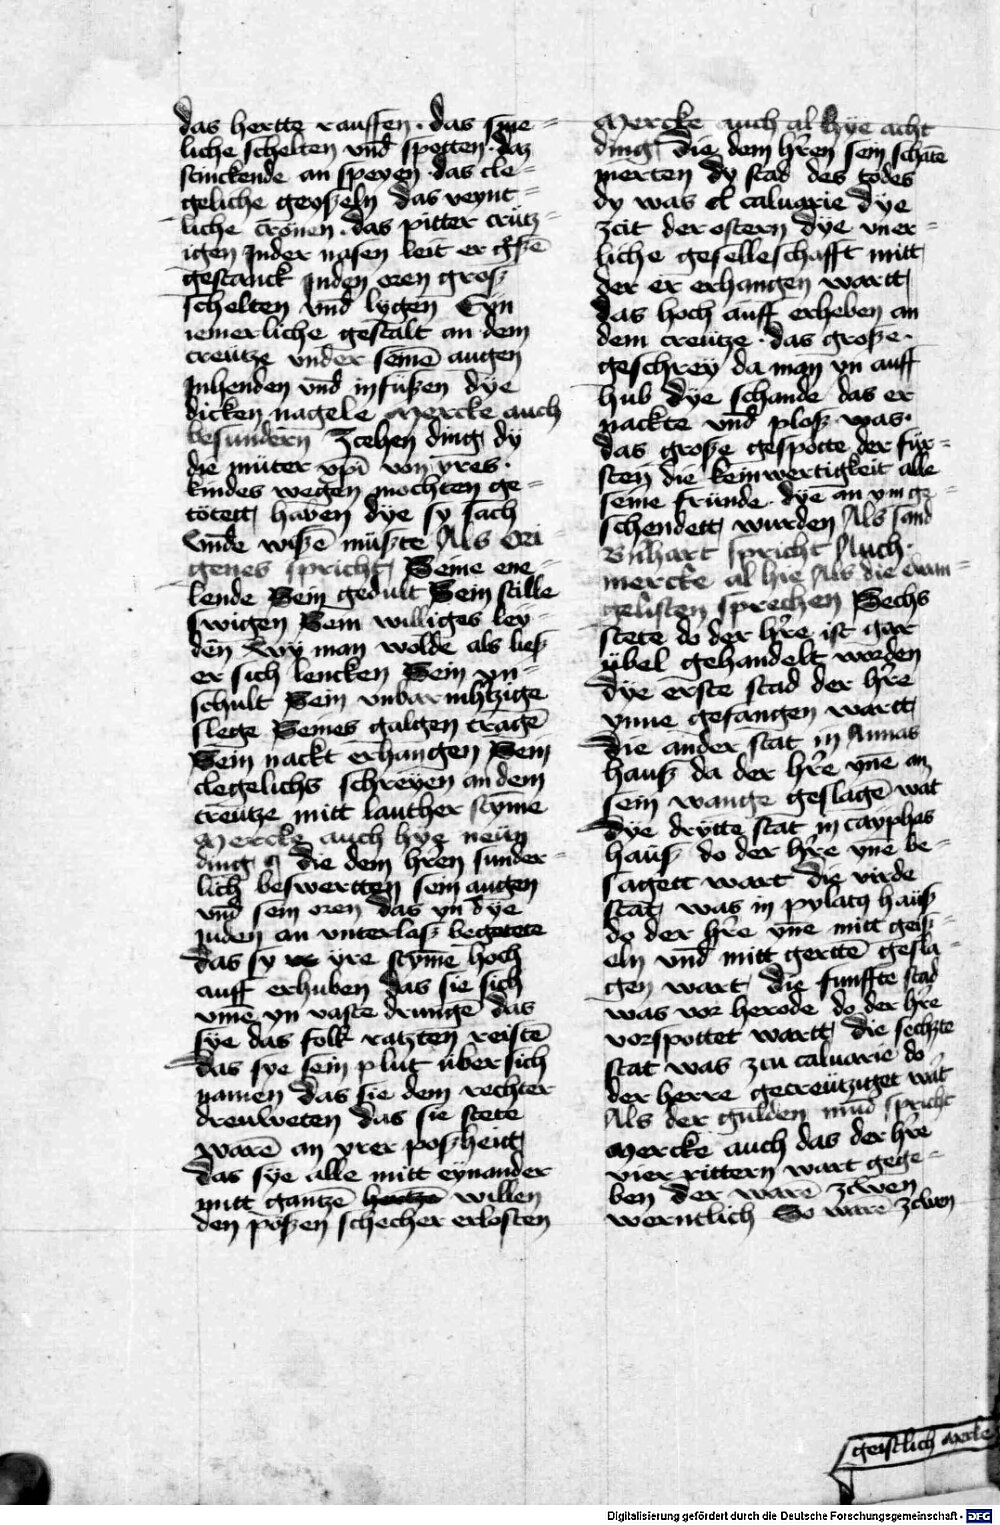 das hertte rauffen · das sme=
liche schelten vnd spotten · daz
stinckende an speyen · das cle=
geliche geyszeln das veynt=
liche crönen · das pitter crütz=
igen Jnder nasen leit er gszē
gestanck Jnden oren grosz
schelten vnd lygen Eyn
iemerliche gestalt an dem
creütze vnder seinē augen
Jnhenden vnd in füszen dye
dicken nagele Mercke auch
besundern Zcehen ding dy
die müter xpī von yres ·
kindes wegen mochten ge=
tötett haben dye sy sach
vnde wiszē müszte Als Ori
genes spricht Seine ene=
lende Sein gedult Sein stille
swigen Sein williges ley=
den Wy man wolde als liesz
er sich lencken Sein vn=
schult Sein vnbarmhtzige
slege Seines galgen tragē
Sein nackt erhangen Sein
clegelichs schreyen an dem
creütze mitt lauther styme
Mercke auch hye neün
ding die dem hren sunder=
lich beswertten sein augen
vnd sein oren das yn dye
juden an vnterlasz begatete
das sy yre stymē hoch
auff erhuben das sie sich
vmē yn vaste drungē das
sye das folk ratzten reistē
das sye sein plut über sich
namen das sie dem rechter
dreuweten das sie stete
warē an yrer poszheitt
das sye alle mitt eynander
mitt gantzē hertze willen
den pöszen schecher erlosten
Mercke auch al hye acht
ding die dem hren sein schāte
merten dy stad des todes
dy was cl caluarie dye
zcit der ostern dye vner=
liche geselleschafft mitt
der er erhangen wartt
das hoch auff erheben an
dem creütze · das grosze ·
geschrey da man yn auff
hub dye schande das er
nackte vnd plosz was ·
das grosze gespötte der für=
sten die keinwertigkeit alle
seine fründe dye an ym ge=
schendett wurden Als sand
Bnhart spricht Auch ·
mercke al hie Als die ewan=
gelisten sprechen Sechs
stete do der hre ist gar
übel gehandelt worden
dye erste stad der hre
ynne gefangen wartt
die ander stat in Annas
hausz da der hre ynē an
sein wange geslagē wat
dye drytte stat in cayphas
haüsz do der hre ynē be=
sagett wart die virde
stat was in pylatꝫ haüsz
do der hre ynē mitt geisz=
eln vnd mitt gertē gesla=
gen wart die funffte stad
was vor herode do der hre
vorspottet wartt die sechzte
stat was zcu caluarie do
der herre getreützget wat
Als der gulden mūd spricht
Mercke auch das der hre
vier rittern wart gege=
ben der warē zcwen
werntlich So ware zcwen
geistlich Merke
Digitalisierung gefördert durch die Deutsche Forschungsgemeinschaft - DFG